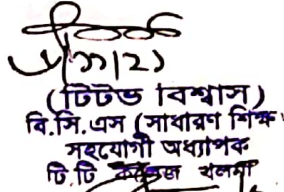 (টিটভ বিশ্বাস)
বি.সি.এস (সাধারণ শিক্ষ
সহযোগী অধ্যাপক
টি.টি কলেজ খুলনা